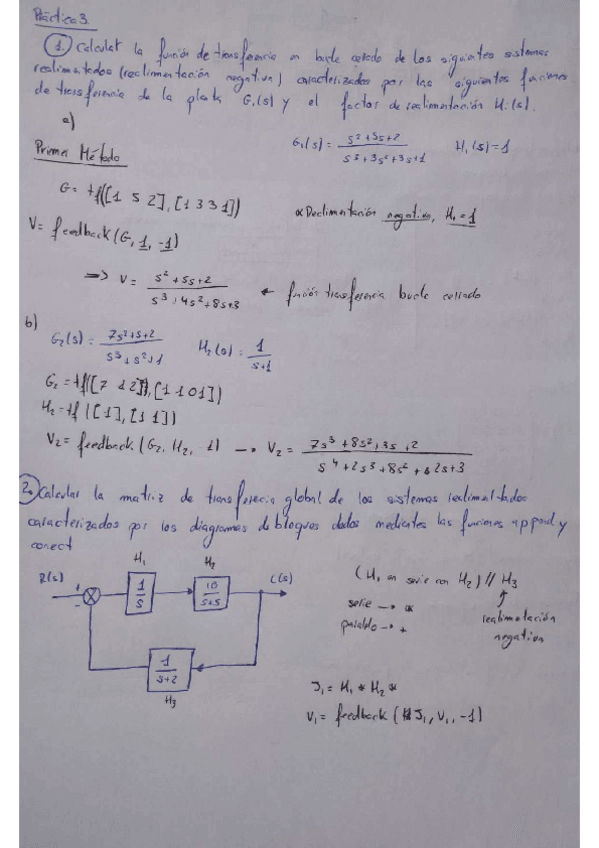 Práctica 3.
1. Calcular la función de transferencia en bucle cerrado de los siguientes sistemas
realimentados (realimentación negativa) caracterizados por las siguientes funciones
de transferencia de la planta G₁(s) y el factor de realimentación H₁(s).
a)
G₁(s) = (s²+5s+2)/(s³+3s²+3s+1) H₁(s)=1
Primer Método
G = tf([1 5 2],[1 3 3 1])
negativa, H₁=1
V = feedback(G, 1, -1)
=> V = (s²+5s+2)/(s³+4s²+8s+3) ← función transferencia bucle cerrado
b)
G₂(s) = (7s²+s+2)/(s³+s²+1) H₂(s) = 1/(s+1)
G₂ = tf([7 1 2],[1 1 0 1])
H₂ = tf([1],[1 1])
V₂ = feedback(G₂, H₂, -1) → V₂ = (7s³+8s²+3s+2)/(s⁴+2s³+8s²+2s+3)
2. Calcular la matriz de transferecia global de los sistemas realimentados
caracterizados por los diagramas de bloques dados mediantes las funciones append y
conect
R(s) + - H₁ 1/s H₂ 10/(s+5) C(s)
1/(s+2) H₃
(H₁ en serie con H₂) // H₃
serie → *
paralelo → +
realimentación
negativa
J₁ = H₁ * H₂ *
V₁ = feedback(J₁, V₁, -1)